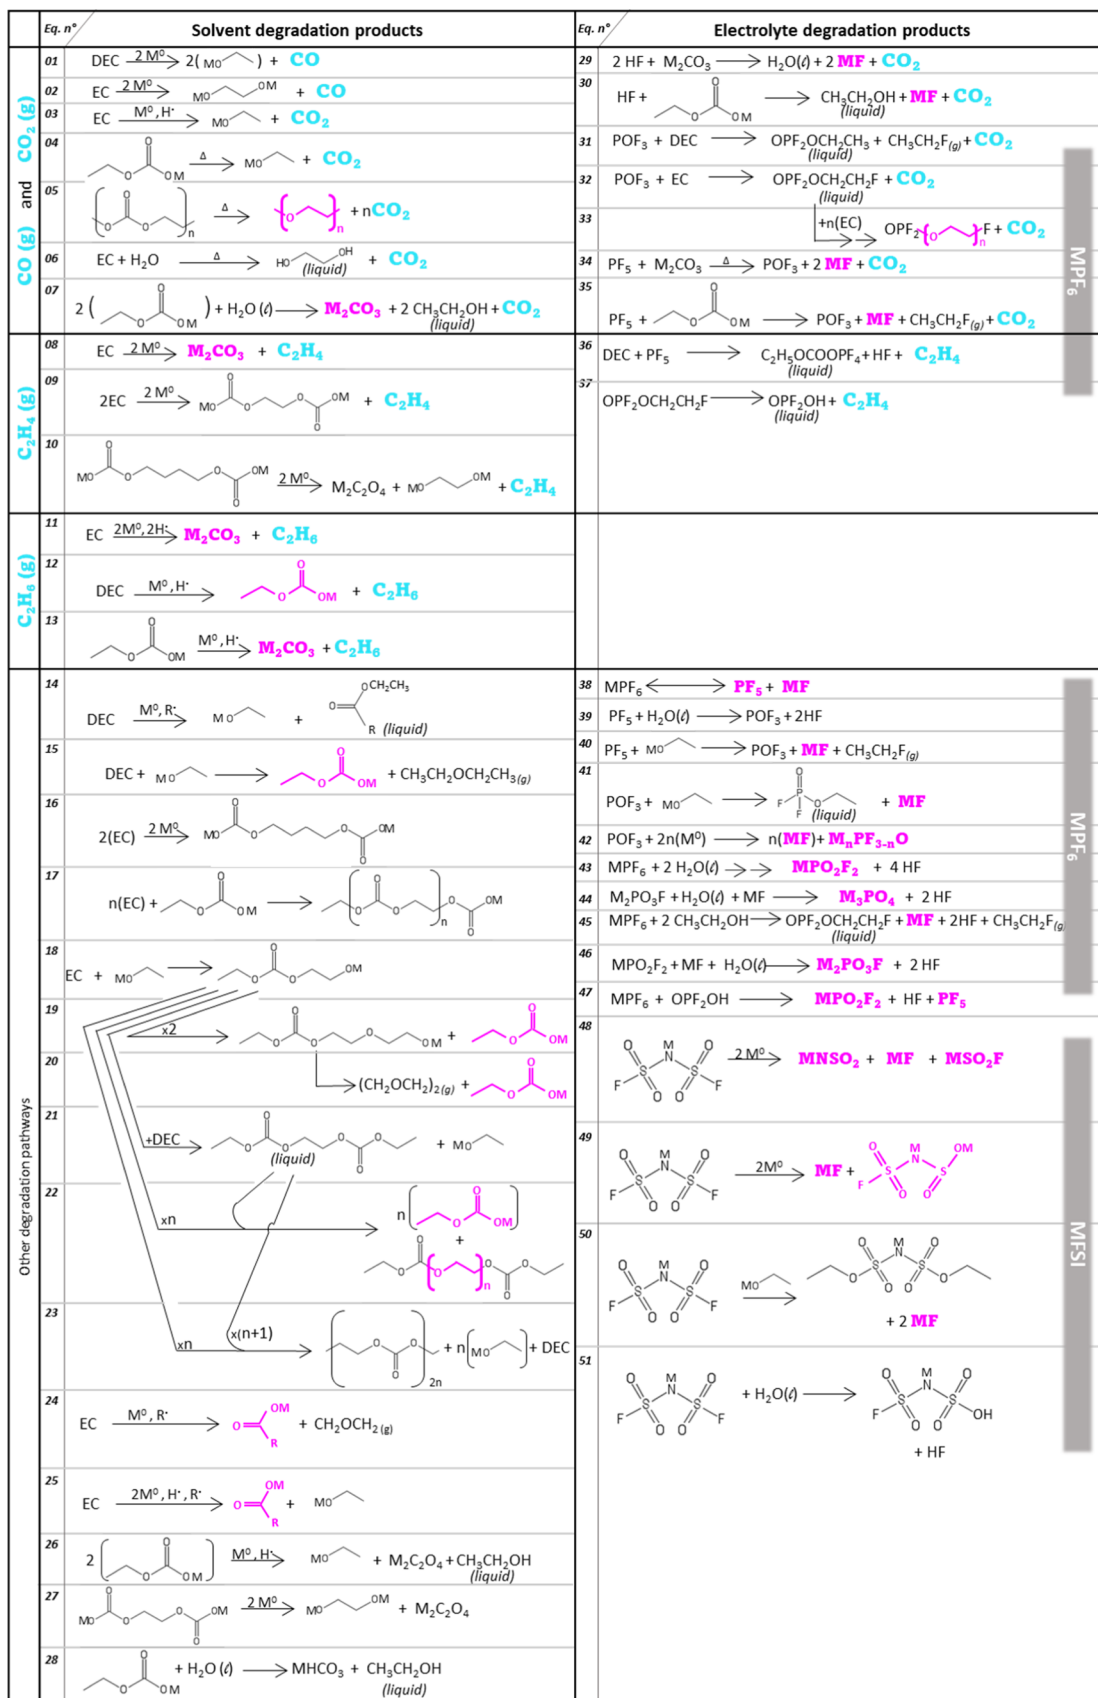 Eq. n° Solvent degradation products
CO (g) and CO₂ (g)
01 DEC 2 M⁰ 2( MO ) + CO
02 EC 2 M⁰ MO OM + CO
03 EC M⁰, H· MO + CO₂
04 O O OM Δ MO + CO₂
05 O O O n Δ O n + nCO₂
06 EC + H₂O Δ HO OH (liquid) + CO₂
07 2 ( O O OM ) + H₂O (ℓ) M₂CO₃ + 2 CH₃CH₂OH + CO₂
(liquid)
C₂H₄ (g)
08 EC 2 M⁰ M₂CO₃ + C₂H₄
09 2EC 2 M⁰ MO O O O O OM + C₂H₄
10 MO O O O O OM 2 M⁰ M₂C₂O₄ + MO OM + C₂H₄
C₂H₆ (g)
11 EC 2M⁰, 2H· M₂CO₃ + C₂H₆
12 DEC M⁰, H· O O OM + C₂H₆
13 O O OM M⁰, H· M₂CO₃ + C₂H₆
Other degradation pathways
14 DEC M⁰, R· MO + OCH₂CH₃ O R (liquid)
15 DEC + MO O O OM + CH₃CH₂OCH₂CH₃(g)
16 2(EC) 2 M⁰ MO O O O O OM
17 n(EC) + O O OM O O O n O O OM
18 EC + MO O O O OM
19 x2 O O O O OM + O O OM
20 (CH₂OCH₂)₂(g) + O O OM
21 +DEC O O O O O O + MO
(liquid)
22 xn n O O OM
+
O O O n O O O
23 xn x(n+1) O O O 2n + n MO + DEC
24 EC M⁰, R· OM O R + CH₂OCH₂ (g)
25 EC 2M⁰, H·, R· OM O R + MO
26 2 O O OM M⁰, H· MO + M₂C₂O₄ + CH₃CH₂OH
(liquid)
27 MO O O O O OM 2 M⁰ MO OM + M₂C₂O₄
28 O O OM + H₂O (ℓ) MHCO₃ + CH₃CH₂OH
(liquid)
Eq. n° Electrolyte degradation products
29 2 HF + M₂CO₃ H₂O(ℓ) + 2 MF + CO₂
30 HF + O O OM CH₃CH₂OH + MF + CO₂
(liquid)
31 POF₃ + DEC OPF₂OCH₂CH₃ + CH₃CH₂F(g) + CO₂
(liquid)
32 POF₃ + EC OPF₂OCH₂CH₂F + CO₂
(liquid)
33 +n(EC) OPF₂ O n F + CO₂
34 PF₅ + M₂CO₃ Δ POF₃ + 2 MF + CO₂
35 PF₅ + O O OM POF₃ + MF + CH₃CH₂F(g) + CO₂
36 DEC + PF₅ C₂H₅OCOOPF₄ + HF + C₂H₄
(liquid)
37 OPF₂OCH₂CH₂F OPF₂OH + C₂H₄
(liquid)
MPF₆
38 MPF₆ PF₅ + MF
39 PF₅ + H₂O(ℓ) POF₃ + 2HF
40 PF₅ + MO POF₃ + MF + CH₃CH₂F(g)
41 POF₃ + MO O F P O F (liquid) + MF
42 POF₃ + 2n(M⁰) n(MF) + MₙPF₃₋ₙO
43 MPF₆ + 2 H₂O(ℓ) MPO₂F₂ + 4 HF
44 M₂PO₃F + H₂O(ℓ) + MF M₃PO₄ + 2 HF
45 MPF₆ + 2 CH₃CH₂OH OPF₂OCH₂CH₂F + MF + 2HF + CH₃CH₂F(g)
(liquid)
46 MPO₂F₂ + MF + H₂O(ℓ) M₂PO₃F + 2 HF
47 MPF₆ + OPF₂OH MPO₂F₂ + HF + PF₅
MPF₆
48 O M O S N S F O O F 2 M⁰ MNSO₂ + MF + MSO₂F
49 O M O S N S F O O F 2M⁰ MF + O M OM S N S F O O
50 O M O S N S F O O F MO O M O S N S O O O O
+ 2 MF
51 O M O S N S F O O F + H₂O(ℓ) O M O S N S F O O OH
+ HF
MFSI